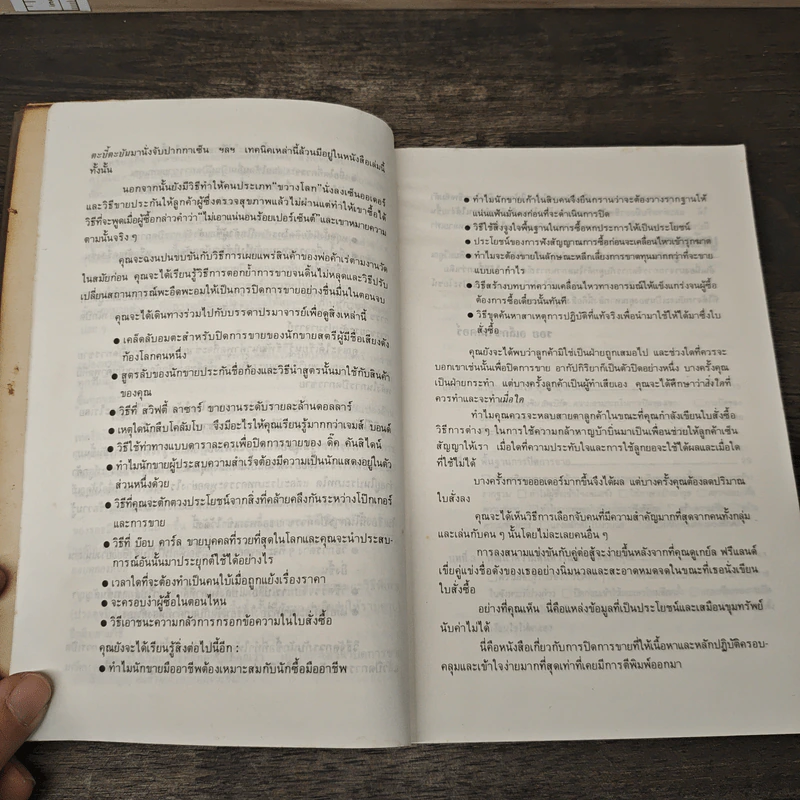 ตะบี้ตะบันมานั่งจับปากกาเซ็น ฯลฯ เทคนิคเหล่านี้ล้วนมีอยู่ในหนังสือเล่มนี้
ทั้งนั้น
นอกจากนั้นยังมีวิธีทำให้คนประเภท"ขวางโลก"นั่งลงเซ็นออเดอร์
และวิธีขายประกันให้ลูกค้าผู้ซึ่งตรวจสุขภาพแล้วไม่ผ่านแต่ทำให้เขาซื้อได้
วิธีที่จะพูดเมื่อผู้ซื้อกล่าวคำว่า"ไม่เอาแน่นอนร้อยเปอร์เซ็นต์"และเขาหมายความ
ตามนั้นจริง ๆ
คุณจะฉงนปนขบขันกับวิธีการเผยแพร่สินค้าของพ่อค้าเร่ตามงานวัด
ในสมัยก่อน คุณจะได้เรียนรู้วิธีการตอกย้ำการขายจนดิ้นไม่หลุดและวิธีปรับ
เปลี่ยนสถานการณ์พะอืดพะอมให้เป็นการปิดการขายอย่างชื่นมื่นในตอนจบ
คุณจะได้เดินทางร่วมไปกับบรรดาปรมาจารย์เพื่อดูสิ่งเหล่านี้
● เคล็ดลับอมตะสำหรับปิดการขายของนักขายสตรีผู้มีชื่อเสียงดัง
ก้องโลกคนหนึ่ง
● สูตรลับของนักขายประกันชื่อก้องและวิธีนำสูตรนั้นมาใช้กับสินค้า
ของคุณ
● วิธีที่ สวิฟตี้ ลาซาร์ ขายงานระดับรายละล้านดอลลาร์
● เหตุใดนักสืบโคลัมโบ จึงมีอะไรให้คุณเรียนรู้มากกว่าเจมส์ บอนด์
● วิธีใช้ท่าทางแบบดาราละครเพื่อปิดการขายของ ดิ๊ค คันสิไดน์
● ทำไมนักขายผู้ประสบความสำเร็จต้องมีความเป็นนักแสดงอยู่ในตัว
ส่วนหนึ่งด้วย
● วิธีที่คุณจะตักตวงประโยชน์จากสิ่งที่คล้ายคลึงกันระหว่างโป๊กเกอร์
และการขาย
● วิธีที่ บ๊อบ คาร์ล ขายบุคคลที่รวยที่สุดในโลกและคุณจะนำประสบ-
การณ์อันนั้นมาประยุกต์ใช้ได้อย่างไร
● เวลาใดที่จะต้องทำเป็นคนใบ้เมื่อถูกแย้งเรื่องราคา
● จะครอบงำผู้ซื้อในตอนไหน
● วิธีเอาชนะความกลัวการกรอกข้อความในใบสั่งซื้อ
คุณยังจะได้เรียนรู้สิ่งต่อไปนี้อีก :
● ทำไมนักขายมืออาชีพต้องเหมาะสมกับนักซื้อมืออาชีพ
● ทำไมนักขายเก้าในสิบคนจึงยืนกรานว่าจะต้องวางรากฐานให้
แน่นแฟ้นมั่นคงก่อนที่จะดำเนินการปิด
● วิธีใช้สิ่งจูงใจพื้นฐานในการซื้อหกประการให้เป็นประโยชน์
● ประโยชน์ของการฟังสัญญาณการซื้อก่อนจะเคลื่อนไหวเข้ารุกฆาต
● ทำไมจะต้องขายในลักษณะหลีกเลี่ยงการขาดทุนมากกว่าที่จะขาย
แบบเอากำไร
● วิธีสร้างบทบาทความเคลื่อนไหวทางอารมณ์ให้แข็งแกร่งจนผู้ซื้อ
ต้องการซื้อเดี๋ยวนั้นทันที
● วิธีขุดค้นหาสาเหตุการปฏิบัติที่แท้จริงเพื่อนำมาใช้ให้ได้มาซึ่งใบ
สั่งซื้อ
คุณยังจะได้พบว่าลูกค้ามิใช่เป็นฝ่ายถูกเสมอไป และช่วงใดที่ควรจะ
บอกเขาเช่นนั้นเพื่อปิดการขาย อากัปกิริยาก็เป็นตัวปิดอย่างหนึ่ง บางครั้งคุณ
เป็นฝ่ายกระทำ แต่บางครั้งลูกค้าเป็นผู้ทำเสียเอง คุณจะได้ศึกษาว่าสิ่งใดที่
ควรทำและจะทำเมื่อใด
ทำไมคุณควรจะหลบสายตาลูกค้าในขณะที่คุณกำลังเขียนใบสั่งซื้อ
วิธีการต่าง ๆ ในการใช้ความกล้าหาญบ้าบิ่นมาเป็นเพื่อนช่วยให้ลูกค้าเซ็น
สัญญาให้เรา เมื่อใดที่ความประทับใจและการใช้ลูกยอจะใช้ได้ผลและเมื่อใด
ที่ใช้ไม่ได้
บางครั้งการขอออเดอร์มากขึ้นจึงได้ผล แต่บางครั้งคุณต้องลดปริมาณ
ใบสั่งลง
คุณจะได้เห็นวิธีการเลือกจับคนที่มีความสำคัญมากที่สุดจากคนทั้งกลุ่ม
และเล่นกับคน ๆ นั้นโดยไม่ละเลยคนอื่น ๆ
การลงสนามแข่งขันกับคู่ต่อสู้จะง่ายขึ้นหลังจากที่คุณดูเกย์ล ฟรีแลนด์
เขี่ยคู่แข่งชื่อดังของเธออย่างนิ่มนวลและสะอาดหมดจดในขณะที่เธอนั่งเขียน
ใบสั่งซื้อ
อย่างที่คุณเห็น นี่คือแหล่งข้อมูลที่เป็นประโยชน์และเหมือนขุมทรัพย์
นับค่าไม่ได้
นี่คือหนังสือเกี่ยวกับการปิดการขายที่ให้เนื้อหาและหลักปฏิบัติครอบ-
คลุมและเข้าใจง่ายมากที่สุดเท่าที่เคยมีการตีพิมพ์ออกมา